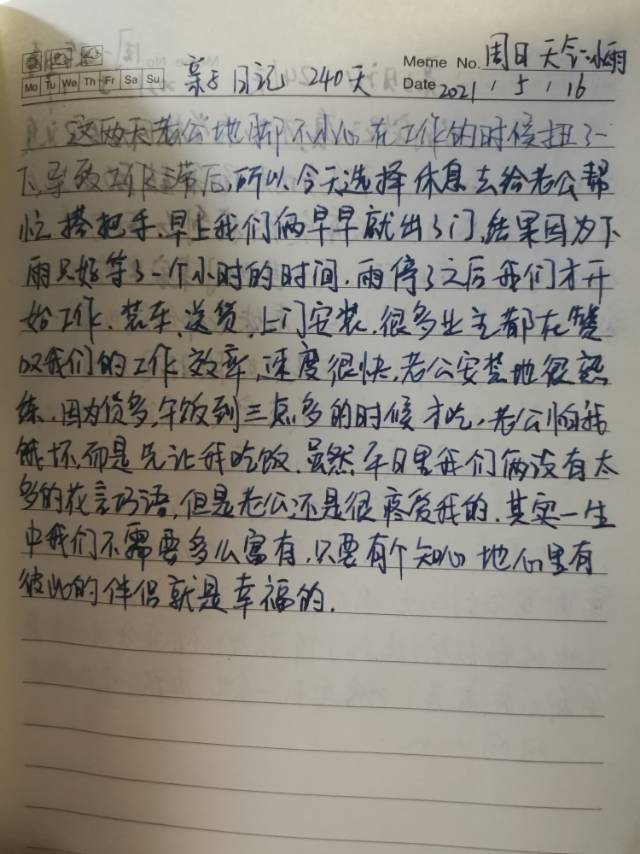 Meme No. 周日 天气:小雨
Mo Tu We Th Fr Sa Su
亲子日记 240天
Date 2021 / 5 / 16
这两天老公地脚不小心在工作的时候扭了一
下,导致工作滞后,所以今天选择休息去给老公帮
忙搭把手.早上我们俩早早就出了门,结果因为下
雨只好等了一个小时的时间.雨停了之后我们才开
始工作.装车.送货.上门安装.很多业主都在赞
叹我们的工作效率,速度很快,老公安装地很熟
练.因为货多,午饭到三点多的时候才吃,老公怕我
饿坏,而是先让我吃饭.虽然平日里我们俩没有太
多的花言巧语,但是老公还是很疼爱我的.其实一生
中我们不需要多么富有.只要有个知心地人心里有
彼此的伴侣就是幸福的.